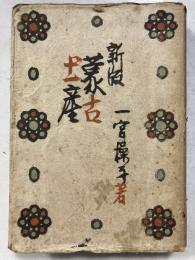 新版
蒙古
土産
一宮操子著